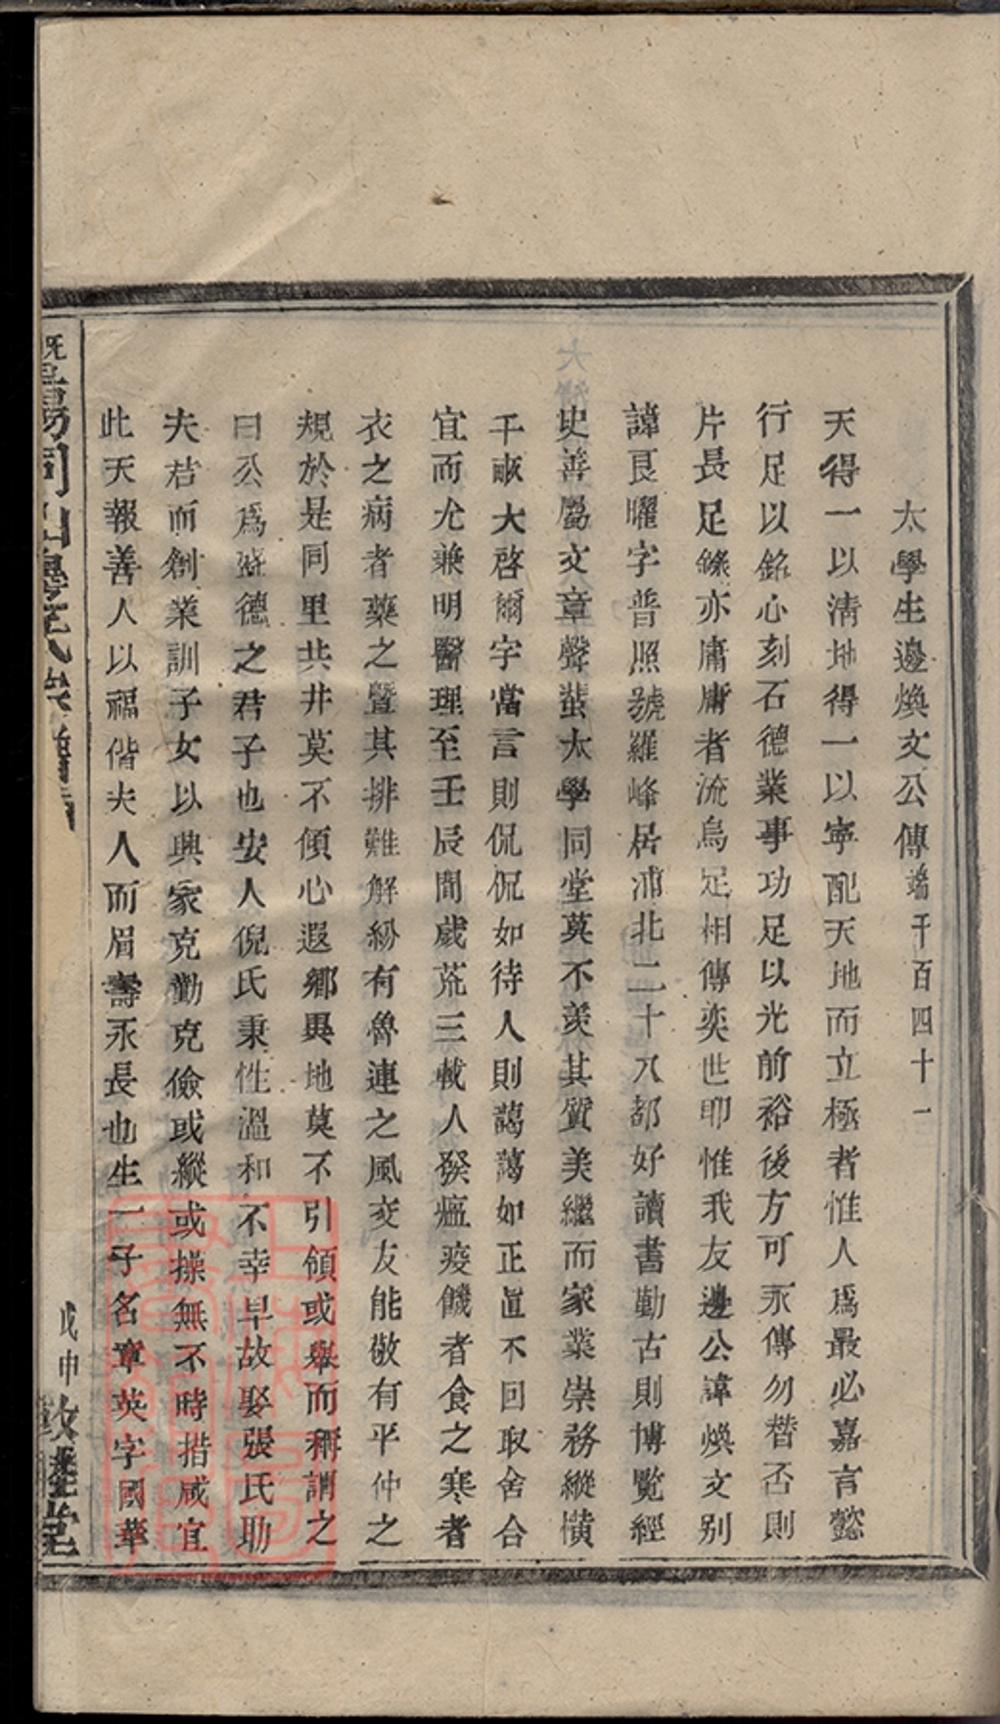 太學生邊煥文公傳 端千百四十一
天得一以清地得一以寧配天地而立極者惟人爲最必嘉言懿
行足以銘心刻石德業事功足以光前裕後方可永傳勿替否則
片長足錄亦庸庸者流烏足相傳奕世耶惟我友邊公諱煥文别
諱艮曜字普照號羅峰居浦北二十八都好讀書勤古則博覽經
史善屬文章聲蜚太學同堂莫不羨其質美繼而家業崇務縱橫
千畝大啓爾宇當言則侃侃如待人則藹藹如正直不回取舍合
宜而尤兼明醫理至壬辰間歲荒三載人發瘟疫饑者食之寒者
衣之病者藥之曁其排難解紛有魯連之風交友能敬有平仲之
規於是同里共井莫不傾心遐鄉異地莫不引領或舉而稱謂之
曰公爲盛德之君子也安人倪氏秉性溫和不幸早故娶張氏助
夫君而創業訓子女以興家克勤克儉或縱或操無不時措咸宜
此天報善人以福偕夫人而眉壽永長也生一子名章英字國華
暨陽同山邊氏宗譜
戊申 敦睦堂